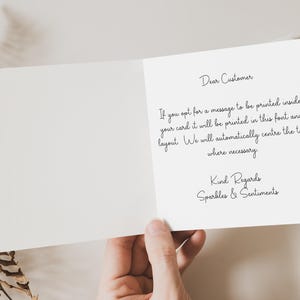 Dear Customer
If you opt for a message to be printed inside
your card it will be printed in this font and
layout. We will automatically centre the t
where necessary.
Kind Regards
Sparkles & Sentiments